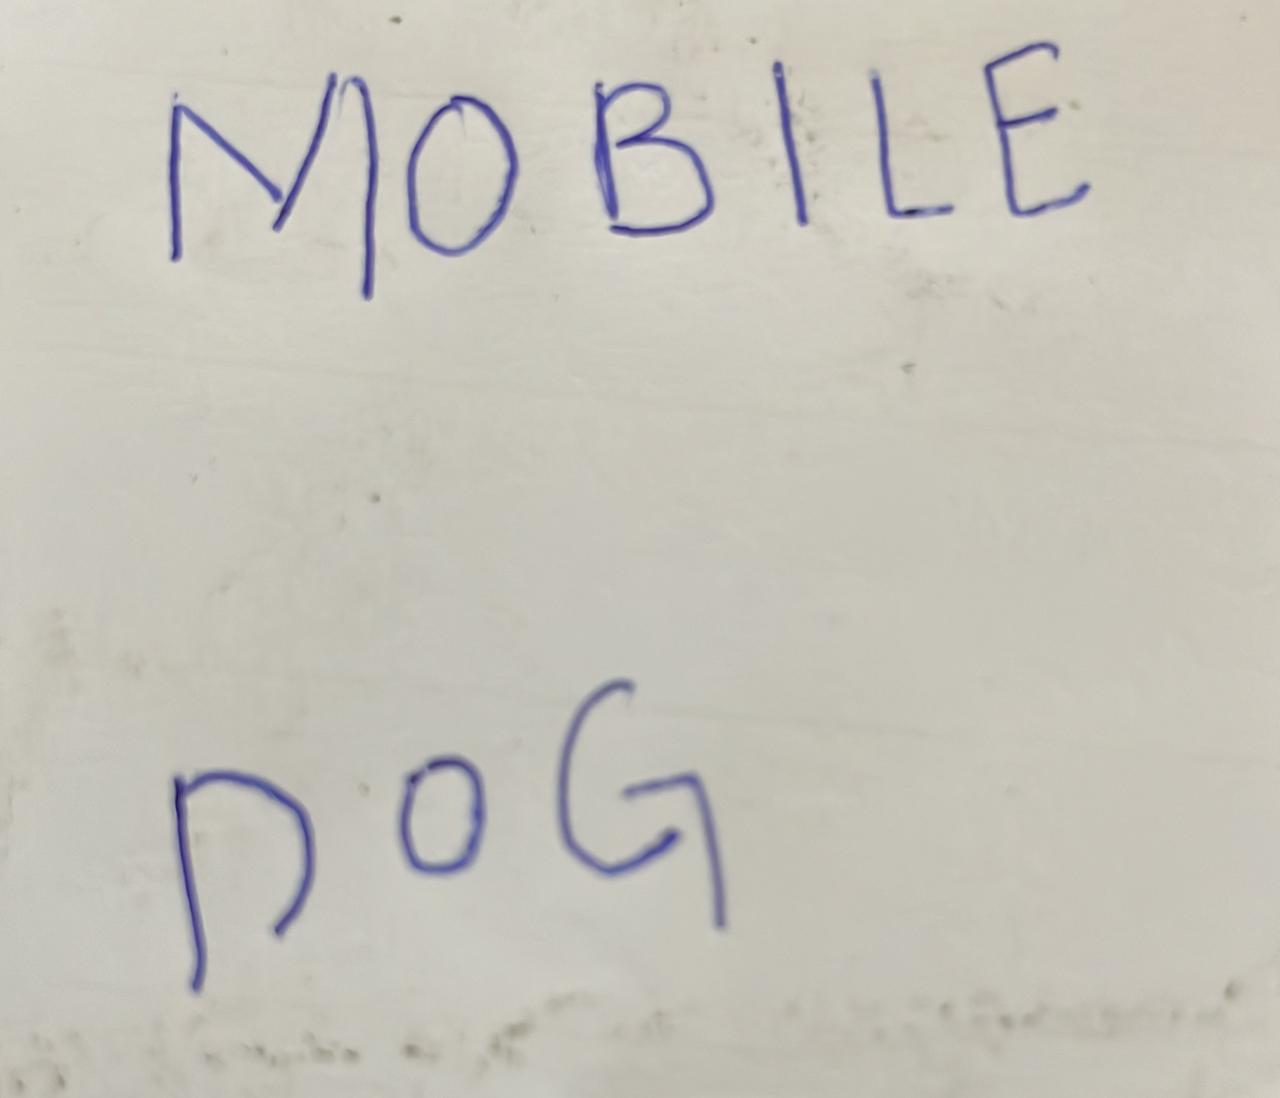 MOBILE
DOG